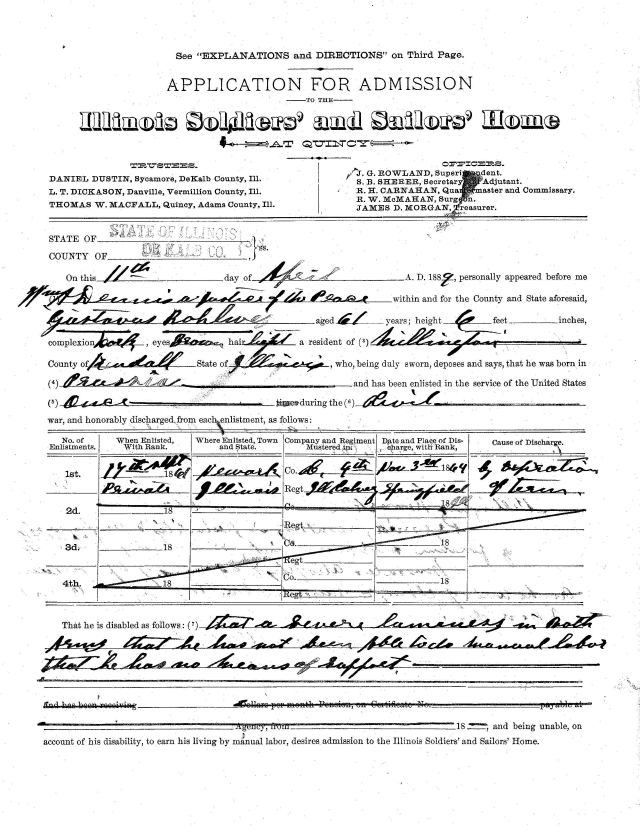 See "EXPLANATIONS and DIRECTIONS" on Third Page.
APPLICATION FOR ADMISSION
TO THE
Illinois Soldiers' and Sailors' Home
AT QUINCY
TRUSTEES.
DANIEL DUSTIN, Sycamore, DeKalb County, Ill.
L. T. DICKASON, Danville, Vermillion County, Ill.
THOMAS W. MACFALL, Quincy, Adams County, Ill.
OFFICERS.
J. G. ROWLAND, Superintendent.
S. B. SHERER, Secretary Adjutant.
R. H. CARNAHAN, Quartermaster and Commissary.
R. W. McMAHAN, Surgeon.
JAMES D. MORGAN, Treasurer.
STATE OF STATE OF ILLINOIS
COUNTY OF DE KALB CO. ss.
On this 11th day of April A. D. 1889, personally appeared before me
Wm A Dennis a Justice of the Peace within and for the County and State aforesaid,
Gustavus Rohlwes aged 61 years; height 6 feet inches,
complexion Dark, eyes Brown, hair light a resident of (3) Millington
County of Kendall State of Illinois, who, being duly sworn, deposes and says, that he was born in
(4) Prussia and has been enlisted in the service of the United States
(5) Once times during the (6) Civil
war, and honorably discharged from each enlistment, as follows:
No. of Enlistments. When Enlisted, With Rank. Where Enlisted, Town and State. Company and Regiment Mustered in. Date and Place of Discharge, with Rank, Cause of Discharge.
1st. 17th Sept 1861 Newark Co. C, 4th Nov 3rd 1864 by Expiration
Private Illinois Regt. Ill Calvey Springfield Ill of term.
2d. 18 Co. 18
Regt
3d. 18 Co. 18
Regt
4th. 18 Co. 18
Regt
That he is disabled as follows: (7) that a Severe lameness in Both
Arms, that he has not been Able to do manual labor
that he has no means of Support.
And has been receiving Dollars per month Pension, on Certificate No. payable at
Agency, from 18 , and being unable, on
account of his disability, to earn his living by manual labor, desires admission to the Illinois Soldiers' and Sailors' Home.